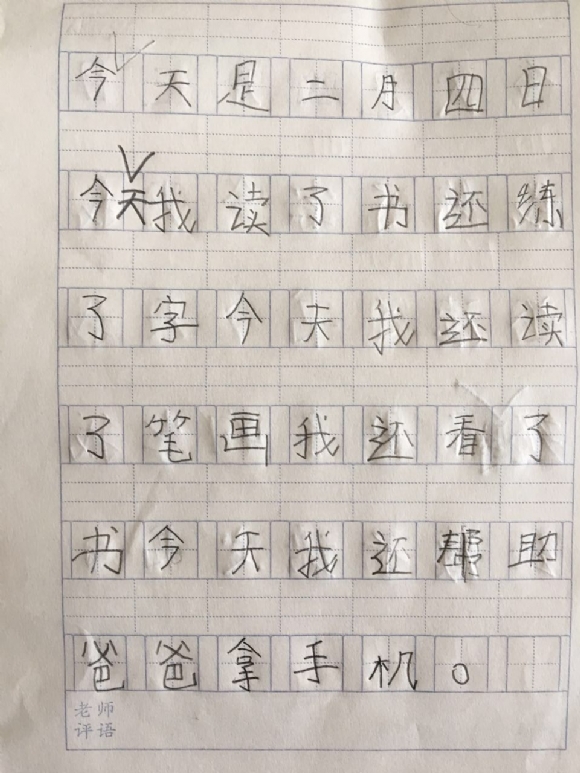 今天是二月四日
今天我读了书还练
了字今天我还读
了笔画我还看了
书今天我还帮助
爸爸拿手机。
老师
评语